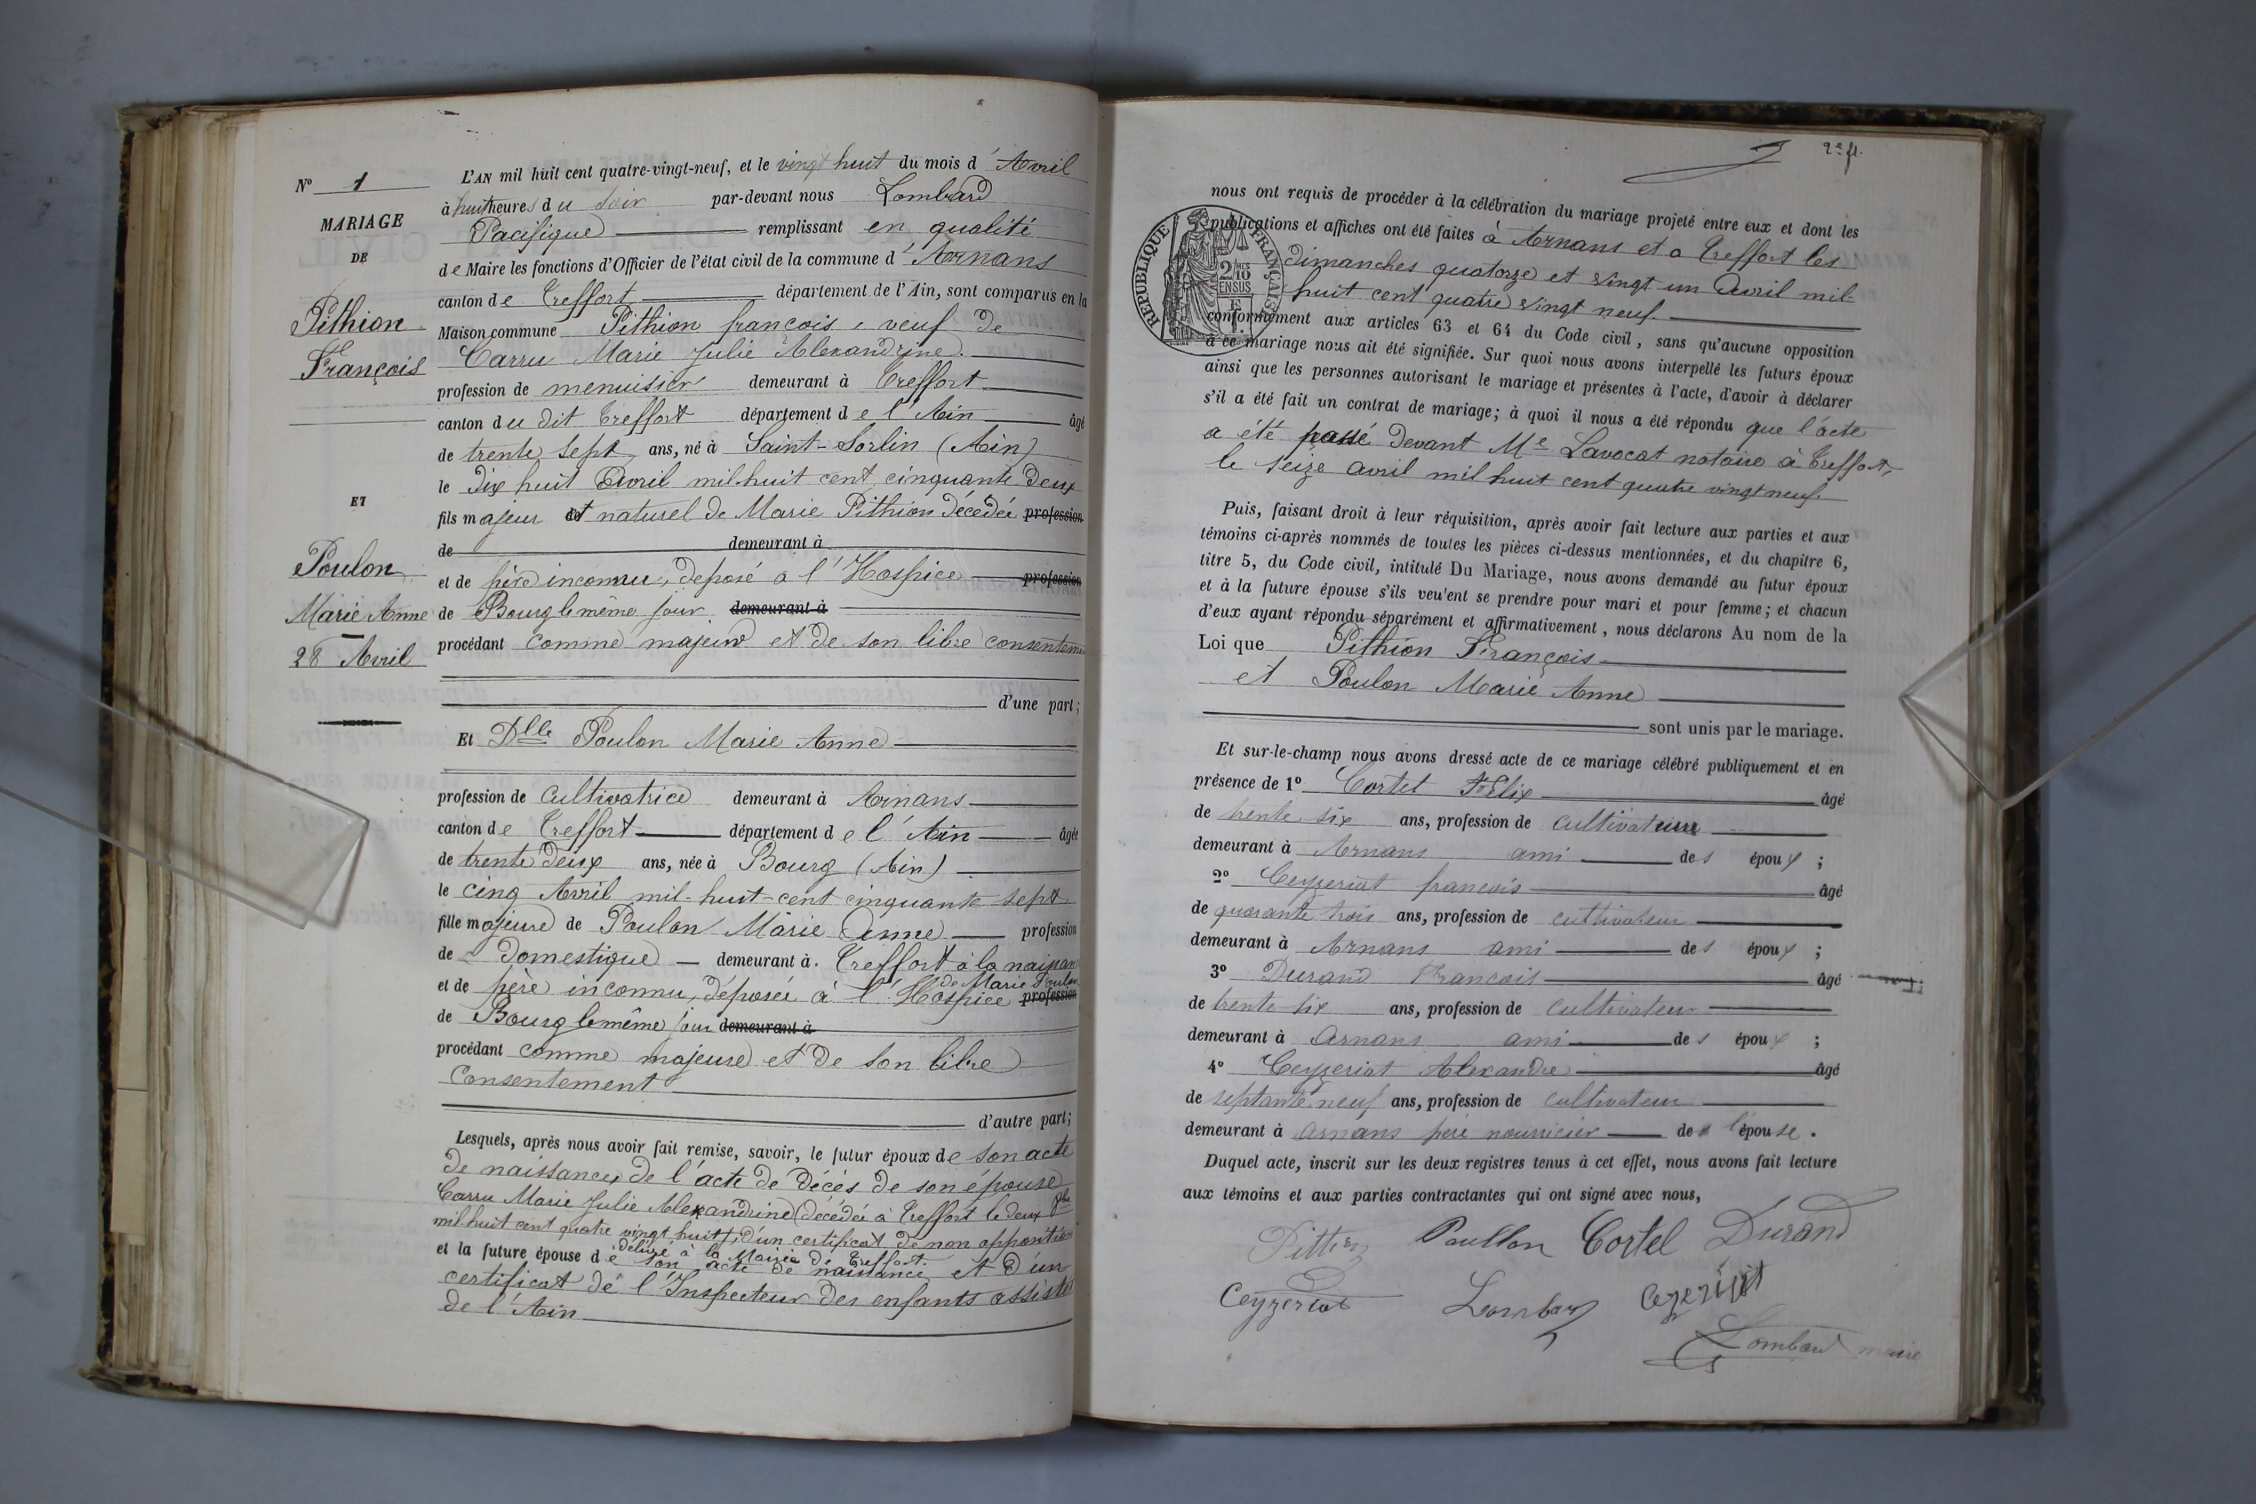 N° 1
MARIAGE
DE
Pithion
François
ET
Poulon
Marie Anne
28 Avril
L'AN mil huit cent quatre-vingt-neuf, et le vingt huit du mois d'Avril
à huit heures du soir par-devant nous Lombard
Pacifique remplissant en qualité
de Maire les fonctions d'Officier de l'état civil de la commune d'Arnans
canton de Treffort département de l'Ain, sont comparus en la
Maison commune Pithion françois, veuf de
Carru Marie Julie Alexandrine
profession de menuisier demeurant à Treffort
canton du dit Treffort département de l'Ain âgé
de trente sept ans, né à Saint-Sorlin (Ain)
le dix huit Avril mil huit cent cinquante deux
fils majeur et naturel de Marie Pithion décédée profession
de demeurant à
et de père inconnu, déposé à l'Hospice profession
de Bourg le même jour demeurant à
procédant comme majeur et de son libre consentem
d'une part;
Et Dlle Poulon Marie Anne
profession de cultivatrice demeurant à Arnans
canton de Treffort département de l'Ain âgée
de trente deux ans, née à Bourg (Ain)
le cinq Avril mil-huit-cent cinquante sept
fille majeure de Poulon Marie Anne profession
de domestique demeurant à Treffort à la naissan
de Marie Poulon
et de père inconnu, déposée à l'Hospice profession
de Bourg le même jour demeurant à
procédant comme majeure et de son libre
consentement
d'autre part;
Lesquels, après nous avoir fait remise, savoir, le futur époux de son acte
de naissance, de l'acte de décès de son épouse
Carru Marie Julie Alexandrine (décédée à Treffort le deux
mil huit cent quatre vingt huit), d'un certificat de non opposition
délivré à la Mairie de Treffort.
et la future épouse de son acte de naissance et d'un
certificat de l'Inspecteur des enfants assistés
de l'Ain
2e f.
nous ont requis de procéder à la célébration du mariage projeté entre eux et dont les
publications et affiches ont été faites à Arnans et a Treffort les
dimanches quatorze et vingt un Avril mil-
huit cent quatre vingt neuf.
RÉPUBLIQUE FRANÇAISE
2/10 EN SUS
conformément aux articles 63 et 64 du Code civil, sans qu'aucune opposition
à ce mariage nous ait été signifiée. Sur quoi nous avons interpellé les futurs époux
ainsi que les personnes autorisant le mariage et présentes à l'acte, d'avoir à déclarer
s'il a été fait un contrat de mariage; à quoi il nous a été répondu que l'acte
a été passé devant Me Lavocat notaire à Treffort,
le seize avril mil huit cent quatre vingt neuf.
Puis, faisant droit à leur réquisition, après avoir fait lecture aux parties et aux
témoins ci-après nommés de toutes les pièces ci-dessus mentionnées, et du chapitre 6,
titre 5, du Code civil, intitulé Du Mariage, nous avons demandé au futur époux
et à la future épouse s'ils veu'ent se prendre pour mari et pour femme; et chacun
d'eux ayant répondu séparément et affirmativement, nous déclarons Au nom de la
Loi que Pithion François
et Poulon Marie Anne
sont unis par le mariage.
Et sur-le-champ nous avons dressé acte de ce mariage célébré publiquement et en
présence de 1° Cortet Félix âgé
de trente six ans, profession de cultivateur
demeurant à Arnans ami des époux;
2° Ceyzeriat francois âgé
de quarante trois ans, profession de cultivateur
demeurant à Arnans ami des époux;
3° Durand Francois âgé
de trente six ans, profession de cultivateur
demeurant à Arnans ami des époux;
4° Ceyzeriat Alexandre âgé
de septante neuf ans, profession de cultivateur
demeurant à Arnans père nourricier de l'épouse.
Duquel acte, inscrit sur les deux registres tenus à cet effet, nous avons fait lecture
aux témoins et aux parties contractantes qui ont signé avec nous,
Pithion Poullon Cortet Durand
Ceyzeriat Lombard
Lombard maire